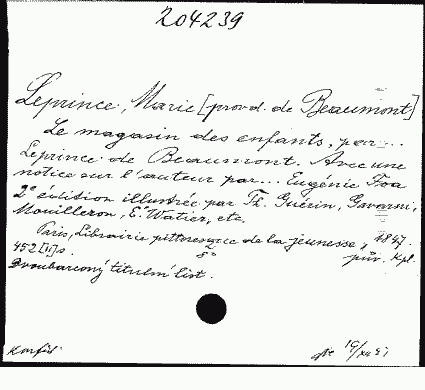 204239
Leprince, Marie [provd. de Beaumont]
Le magasin des enfants, par...
Leprince de Beaumont. Avec une
notice sur l'auteur par... Eugénie Foa
2e édition illustrée par Th. Guérin, Gavarni,
Mouilleron, E. Watier, etc.
Paris, Librairie pittoresque de la jeunesse, 1847.
8° pův. kpl.
452 [II] s.
Dvoubarevný titulní list.